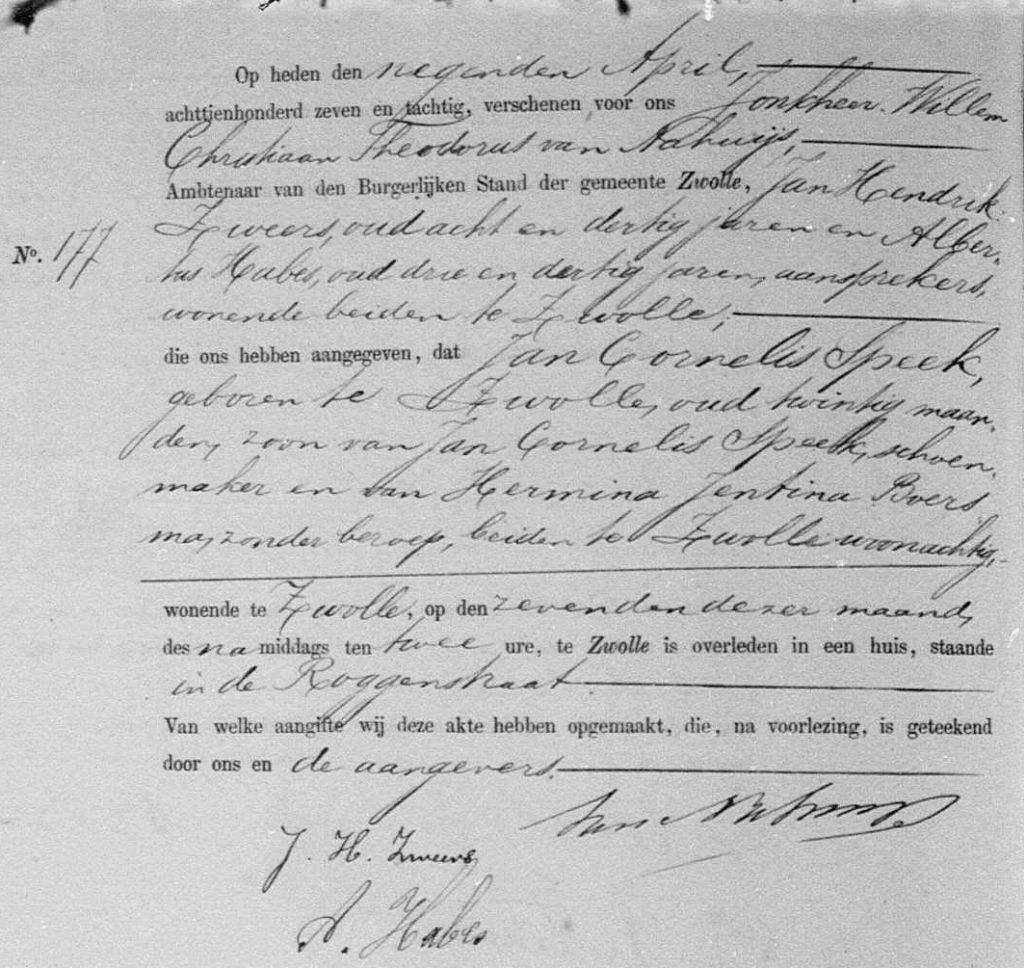 Op heden den negenden April,
achttienhonderd zeven en tachtig, verschenen voor ons Jonkheer Willem
Christiaan Theodorus van Nahuijs,
Ambtenaar van den Burgerlijken Stand der gemeente Zwolle, Jan Hendrik
Zweers, oud acht en dertig jaren en Alber-
No. 177
tus Habes, oud drie en dertig jaren, aansprekers,
wonende beiden te Zwolle,
die ons hebben aangegeven, dat Jan Cornelis Speek,
geboren te Zwolle, oud twintig maan-
den, zoon van Jan Cornelis Speek, schoen-
maker en van Hermina Jentina Boers
ma, zonder beroep, beiden te Zwolle woonachtig,
wonende te Zwolle, op den zevenden dezer maand,
des namiddags ten twee ure, te Zwolle is overleden in een huis, staande
in de Roggenstraat
Van welke aangifte wij deze akte hebben opgemaakt, die, na voorlezing, is geteekend
door ons en de aangevers.
J. H. Zweers
A. Habes